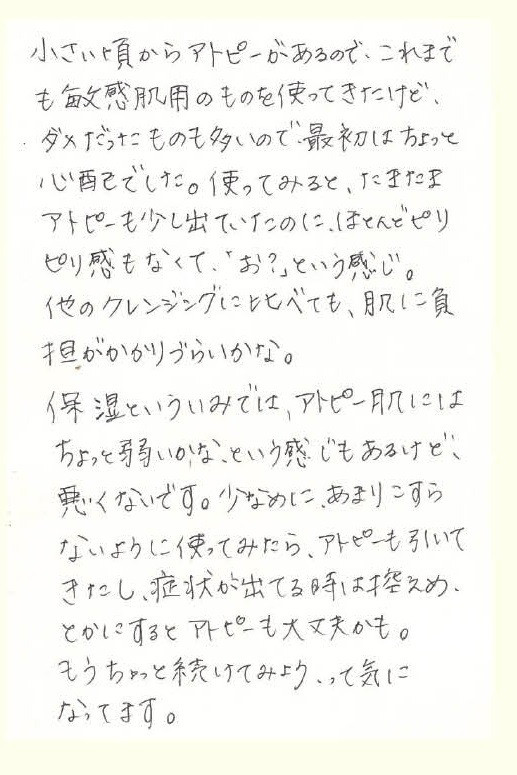 小さい頃からアトピーがあるので、これまで
も敏感肌用のものを使ってきたけど、
ダメだったものも多いので、最初はちょっと
心配でした。使ってみると、たまたま
アトピーも少し出ていたのに、ほとんどピリ
ピリ感もなくて、「お?」という感じ。
他のクレンジングに比べても、肌に負
担がかかりづらいかな。
保湿といういみでは、アトピー肌には
ちょっと弱いかな、という感じもあるけど、
悪くないです。少なめに、あまりこすら
ないように使ってみたら、アトピーも引いて
きたし、症状が出てる時は控えめ、
とかにするとアトピーも大丈夫かも。
もうちょっと続けてみよう、って気に
なってます。